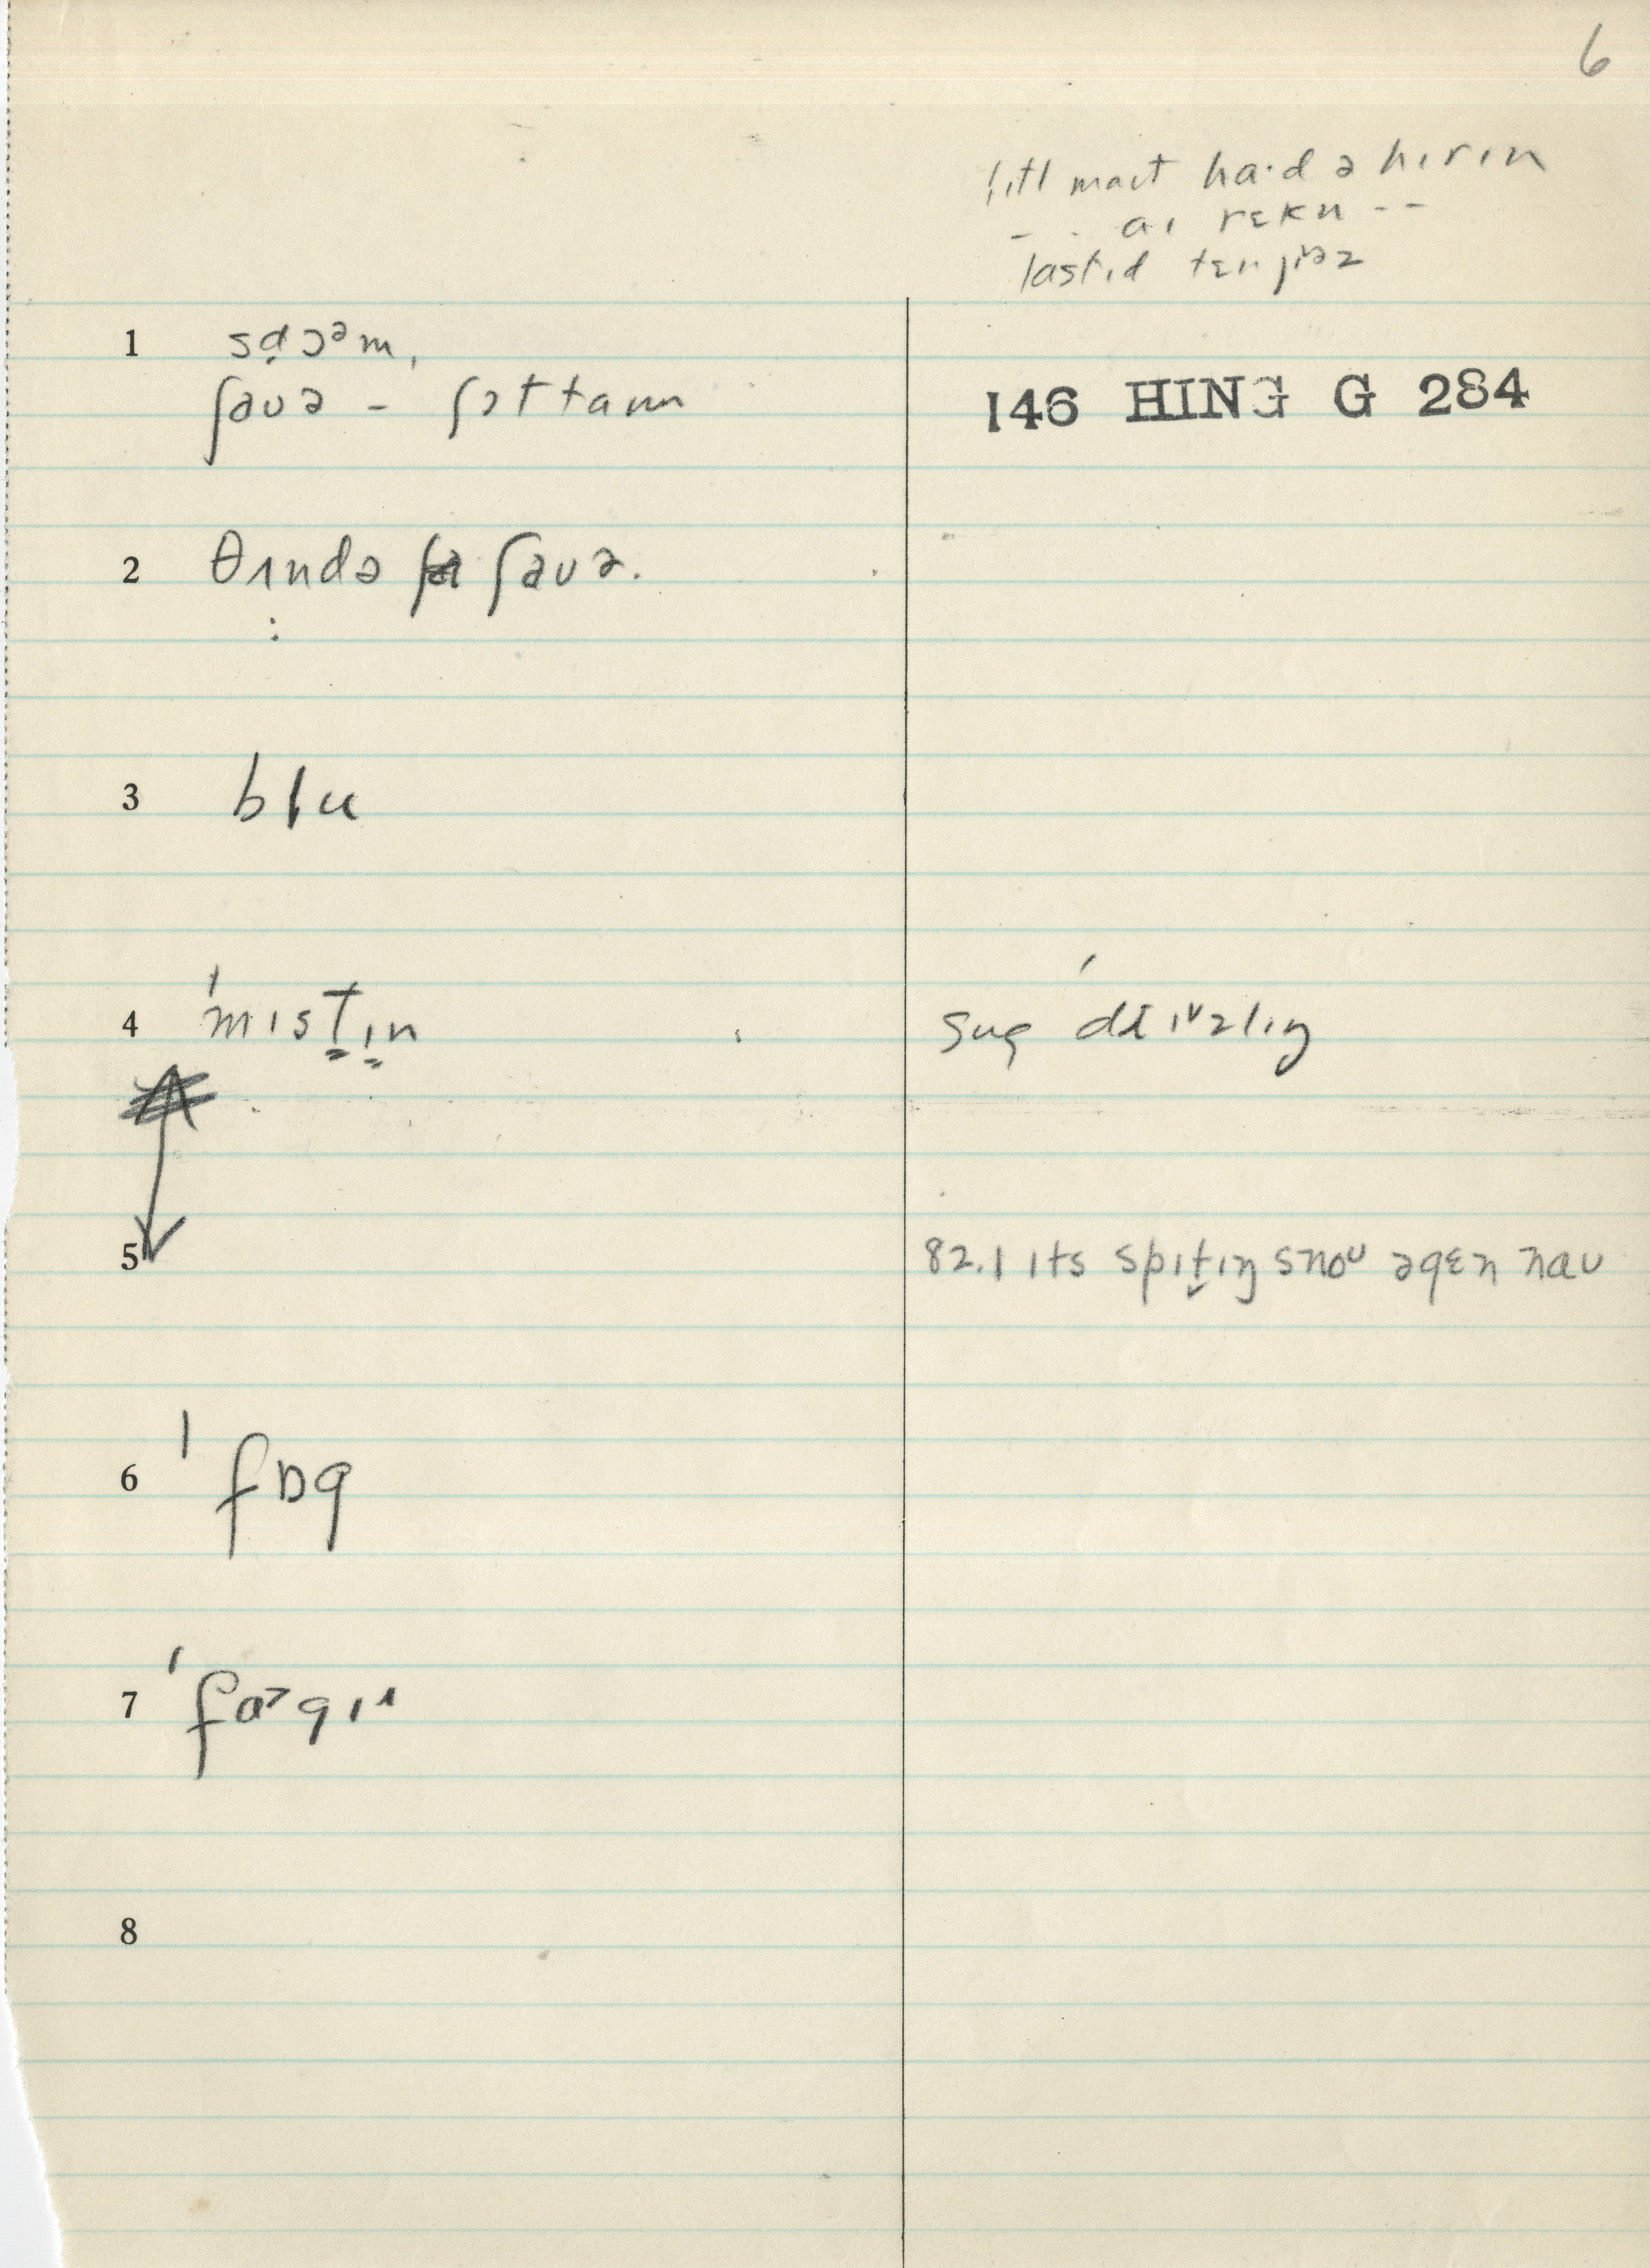 6
lɪtl maɪt ha·d ə hɪrɪn
- - aɪ rɛkn - -
lastɪd tɛn jɪəz
1 sḍɔᵊm,
ʃaʊə - ʃɔt taɪm
146 HING G 284
2 θʌndə ʃaʊə.
3 blu
4 ˈmɪstɪn
5
82.1 ɪts spɪt̬ɪŋ snoᶷ əgɛn naʊ
6 ˈfɒg
7 ˈfɒᵊgɪ
8